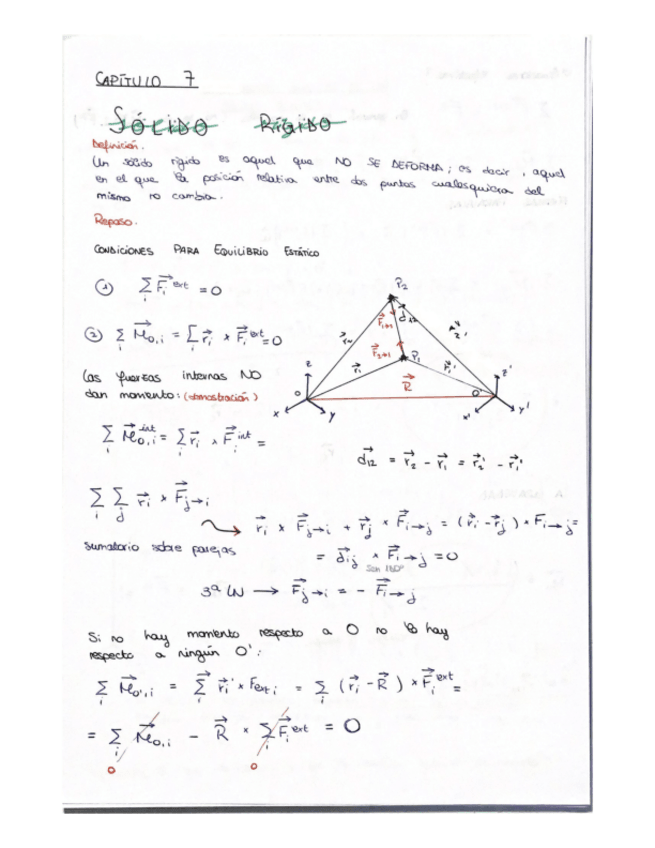 CAPÍTULO 7
SÓLIDO RÍGIDO
Definición.
Un sólido rígido es aquel que NO SE DEFORMA; es decir, aquel
en el que la posición relativa entre dos puntos cualesquiera del
mismo no cambia.
Repaso.
CONDICIONES PARA EQUILIBRIO ESTÁTICO
① ∑ᵢ F⃗ᵢ ᵉˣᵗ = 0
② ∑ᵢ M⃗₀,ᵢ = [ r⃗ᵢ × F⃗ᵢ ᵉˣᵗ = 0
Las fuerzas internas NO
dan momento: (demostración)
∑ᵢ M⃗₀,ᵢ ⁱⁿᵗ = ∑ᵢ r⃗ᵢ × F⃗ᵢ ⁱⁿᵗ =
P₂
d⃗₁₂
P₁
r⃗₁
r⃗₁'
R⃗
O
O'
x
y
z
x'
y'
z'
d⃗₁₂ = r⃗₂ - r⃗₁ = r⃗₂' - r⃗₁'
∑ᵢ ∑ⱼ r⃗ᵢ × F⃗ j→i
r⃗ᵢ × F⃗ j→i + r⃗ⱼ × F⃗ i→j = (r⃗ᵢ - r⃗ⱼ) × F i→j =
sumatorio sobre parejas
= d⃗ᵢⱼ × F⃗ i→j = 0
Son 180º
3ª LN → F⃗ j→i = - F⃗ i→j
Si no hay momento respecto a O no lo hay
respecto a ningún O':
∑ᵢ M⃗₀',ᵢ = ∑ r⃗ᵢ' × F ext i = ∑ᵢ (r⃗ᵢ - R⃗) × F⃗ᵢ ᵉˣᵗ =
= ∑ᵢ M⃗₀,ᵢ - R⃗ × ∑ᵢ F⃗ᵢ ᵉˣᵗ = 0
0 0